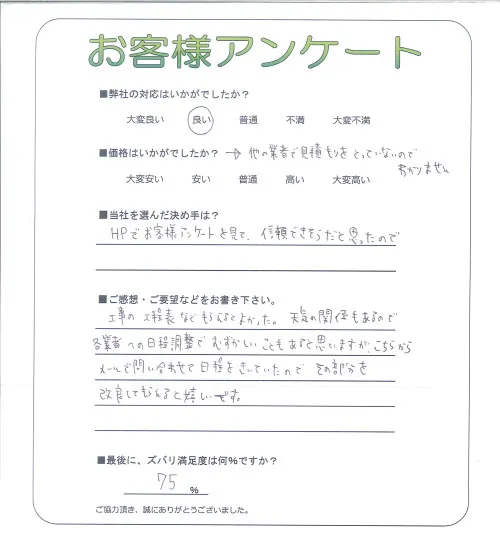 お客様アンケート
■弊社の対応はいかがでしたか？
大変良い 良い 普通 不満 大変不満
■価格はいかがでしたか？ → 他の業者で見積もりをとっていないので
わかりません
大変安い 安い 普通 高い 大変高い
■当社を選んだ決め手は？
HPでお客様アンケートを見て、信頼できそうだと思ったので
■ご感想・ご要望などをお書き下さい。
工事の工程表などもらえるとよかった。天気の関係もあるので
各業者への日程調整でむずかしいこともあると思いますが、こちらから
メールで問い合わせて日程をきいていたのでその部分を
改良してもらえると嬉しいです。
■最後に、ズバリ満足度は何％ですか？
75 %
ご協力頂き、誠にありがとうございました。